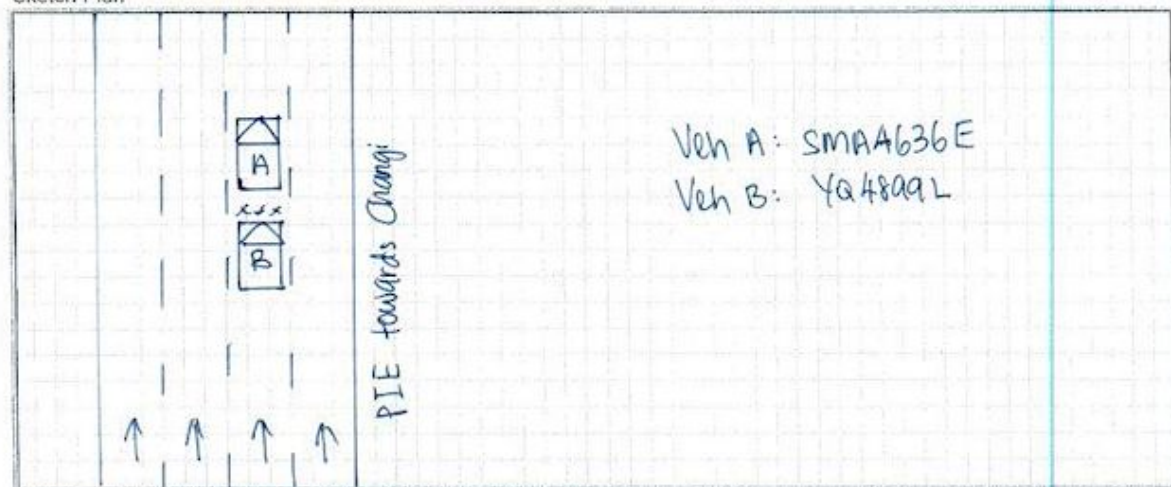 Sketch Plan
A
B
PIE towards Changi
Veh A: SMA4636E
Veh B: YQ4899L